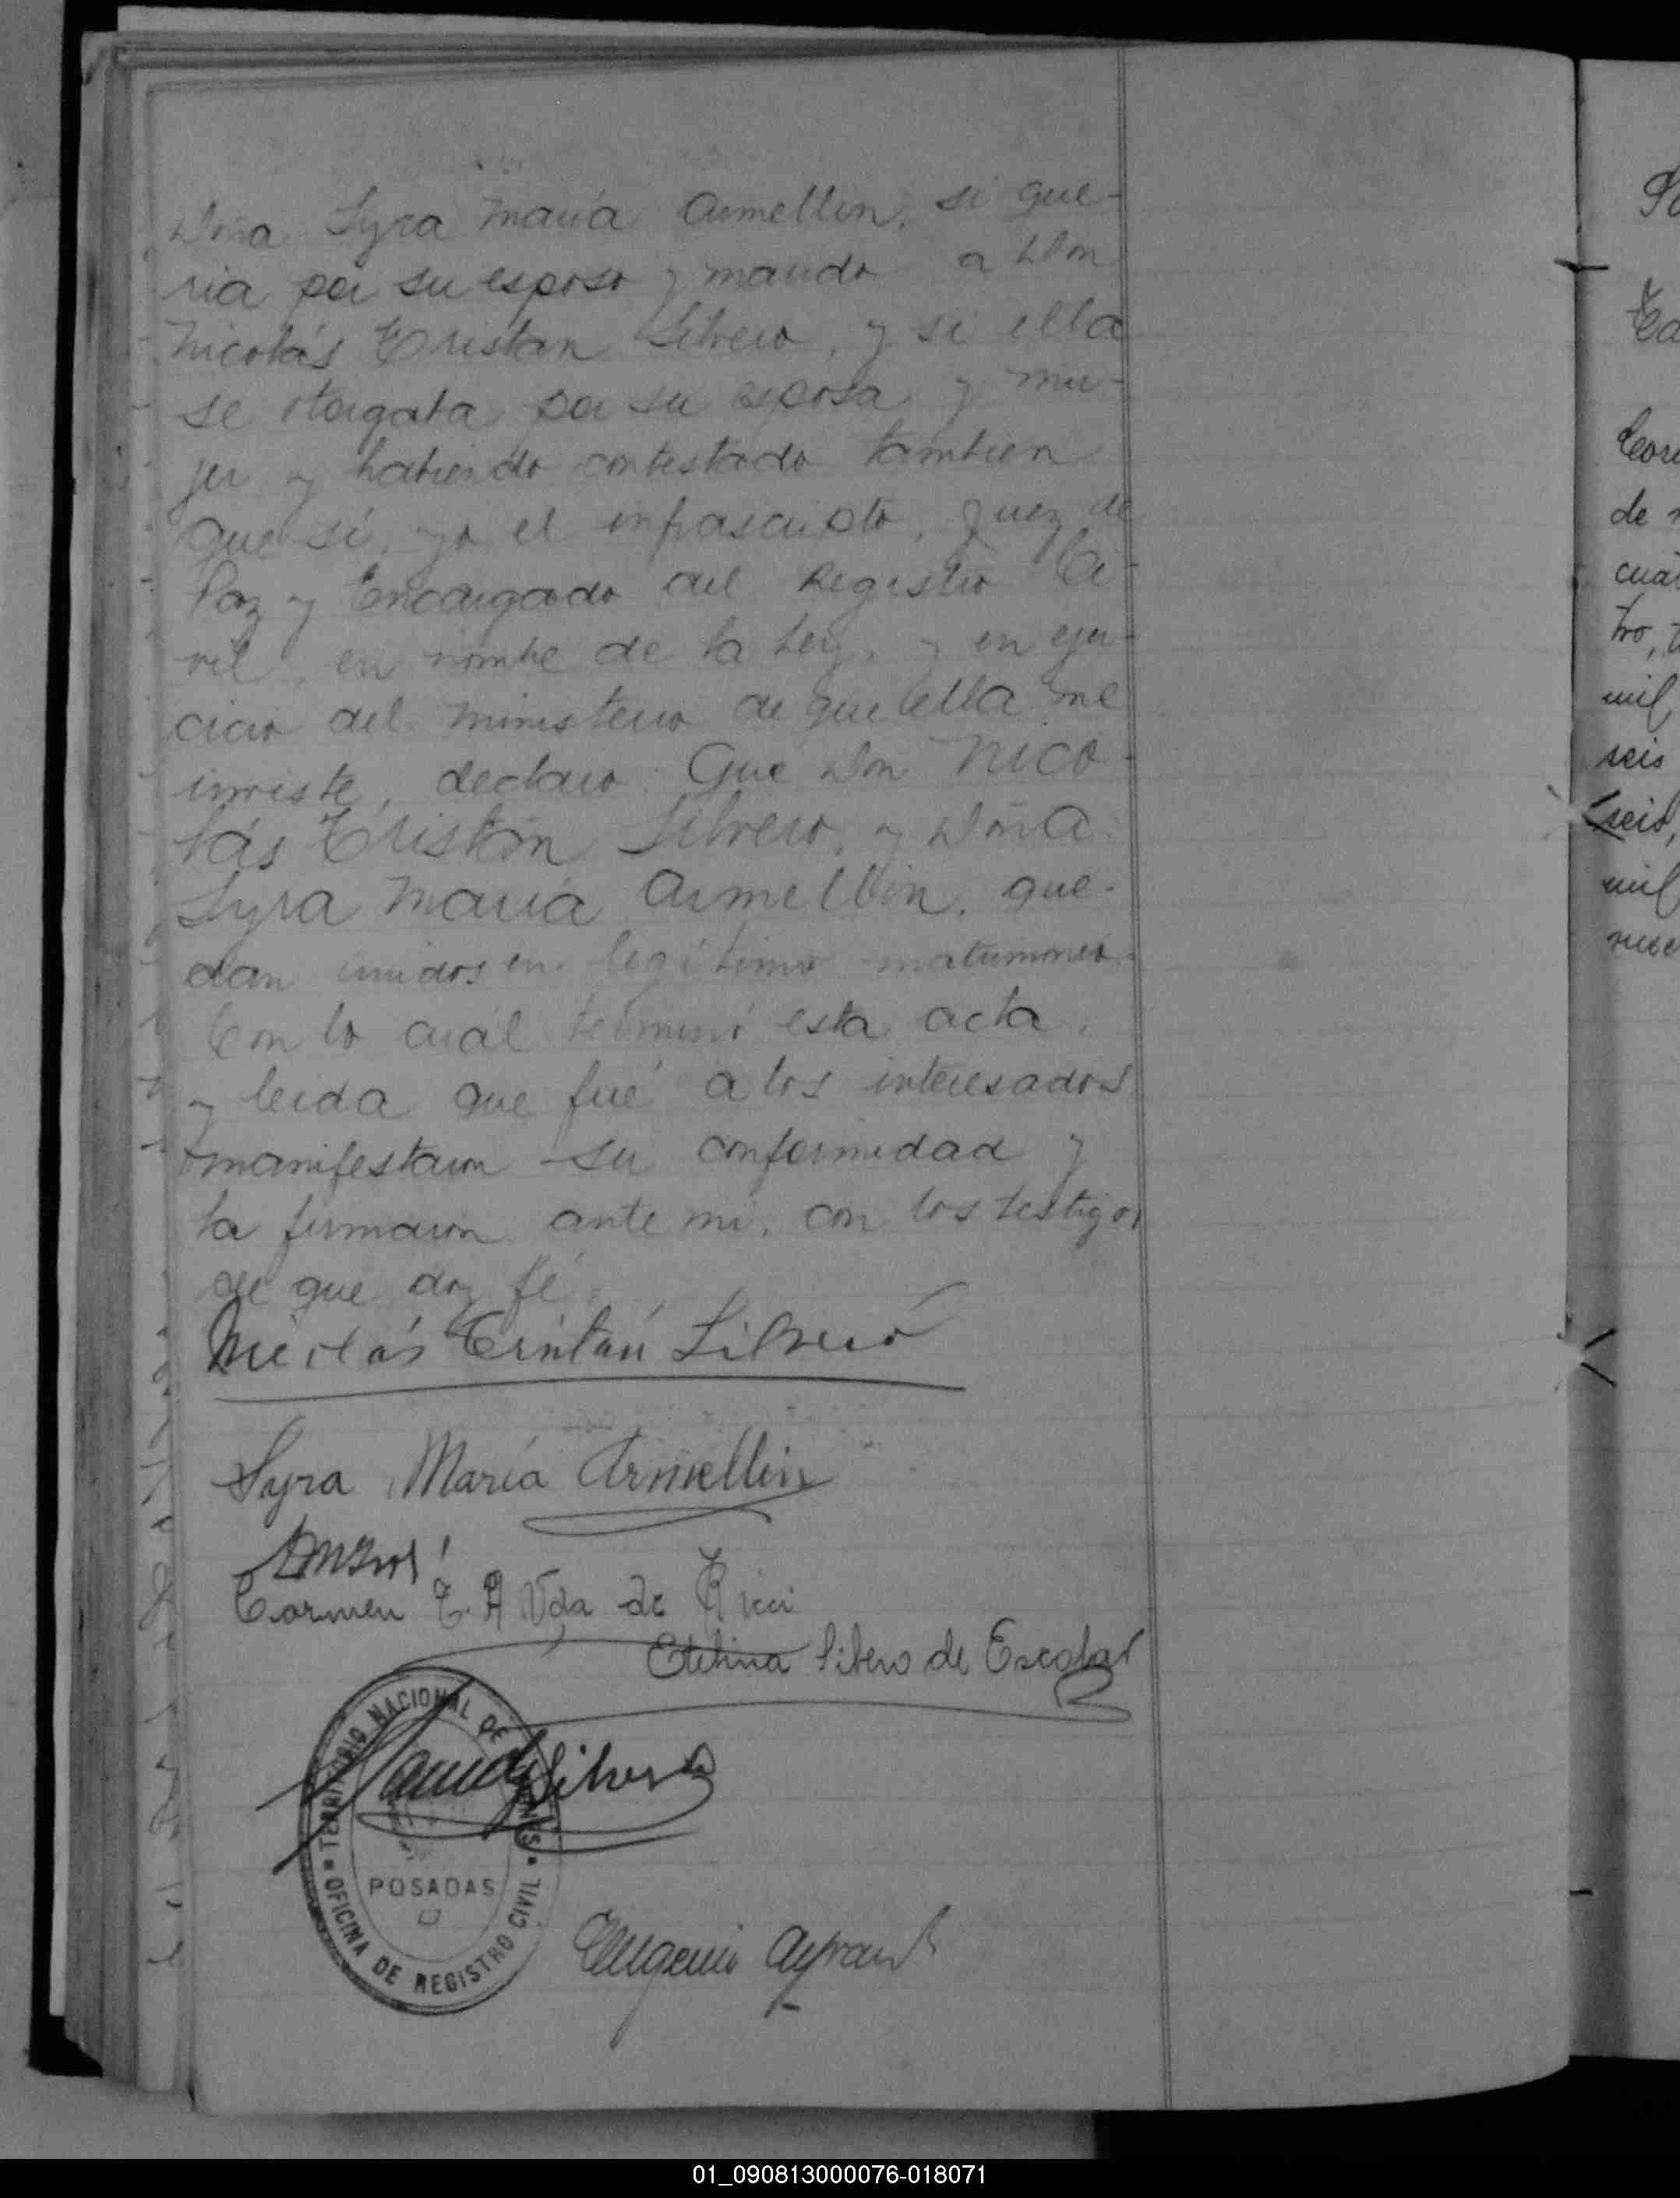 Doña Lyra María Armellin, si que-
ria por su esposo y marido a Don
Nicolás Tristan Silvero, y si ella
se otorgaba por su esposa y mu-
jer y habiendo contestado tambien
que si, yo el infrascripto, Juez de
Paz y Encargado del Registro Ci-
vil, en nombre de la Ley, y en ejer-
cicio del ministerio de que ella me
inviste, declaro: Que Don Nico-
lás Tristán Silvero, y Doña
Lyra María Armellin, que-
dan unidos en legítimo matrimonio.
Con lo cuál terminó esta acta,
y leida que fué a los interesados
manifestaron su conformidad y
la firmaron ante mi, con los testigos
de que doy fé.
Nicolás Tristán Silvero
Lyra María Armellin
Carmen T. A Vda de Ricci
Etelvina Silvero de Escobar
Silvero
TERRITORIO NACIONAL DE MISIONES
POSADAS
OFICINA DE REGISTRO CIVIL
Eugenio
So
Ca
Cor
de
cua
tro, t
mil
seis
seis,
mil
nue
01_090813000076-018071